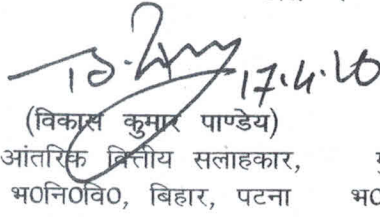 17.4.20
(विकास कुमार पाण्डेय)
आंतरिक वित्तीय सलाहकार,
भ0नि0वि0, बिहार, पटना भ0